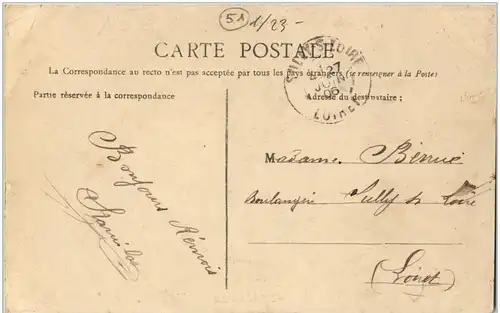 51 1/23-
CARTE POSTALE
La Correspondance au recto n'est pas acceptée par tous les pays étrangers (se renseigner à la Poste)
Partie réservée à la correspondance
Bonjours Rémois
Stanislas
SULLY-S-LOIRE
27
JUIN
06
LOIRET
Adresse du destinataire :
Madame
Boulangerie Sully s Loire
(Loiret)